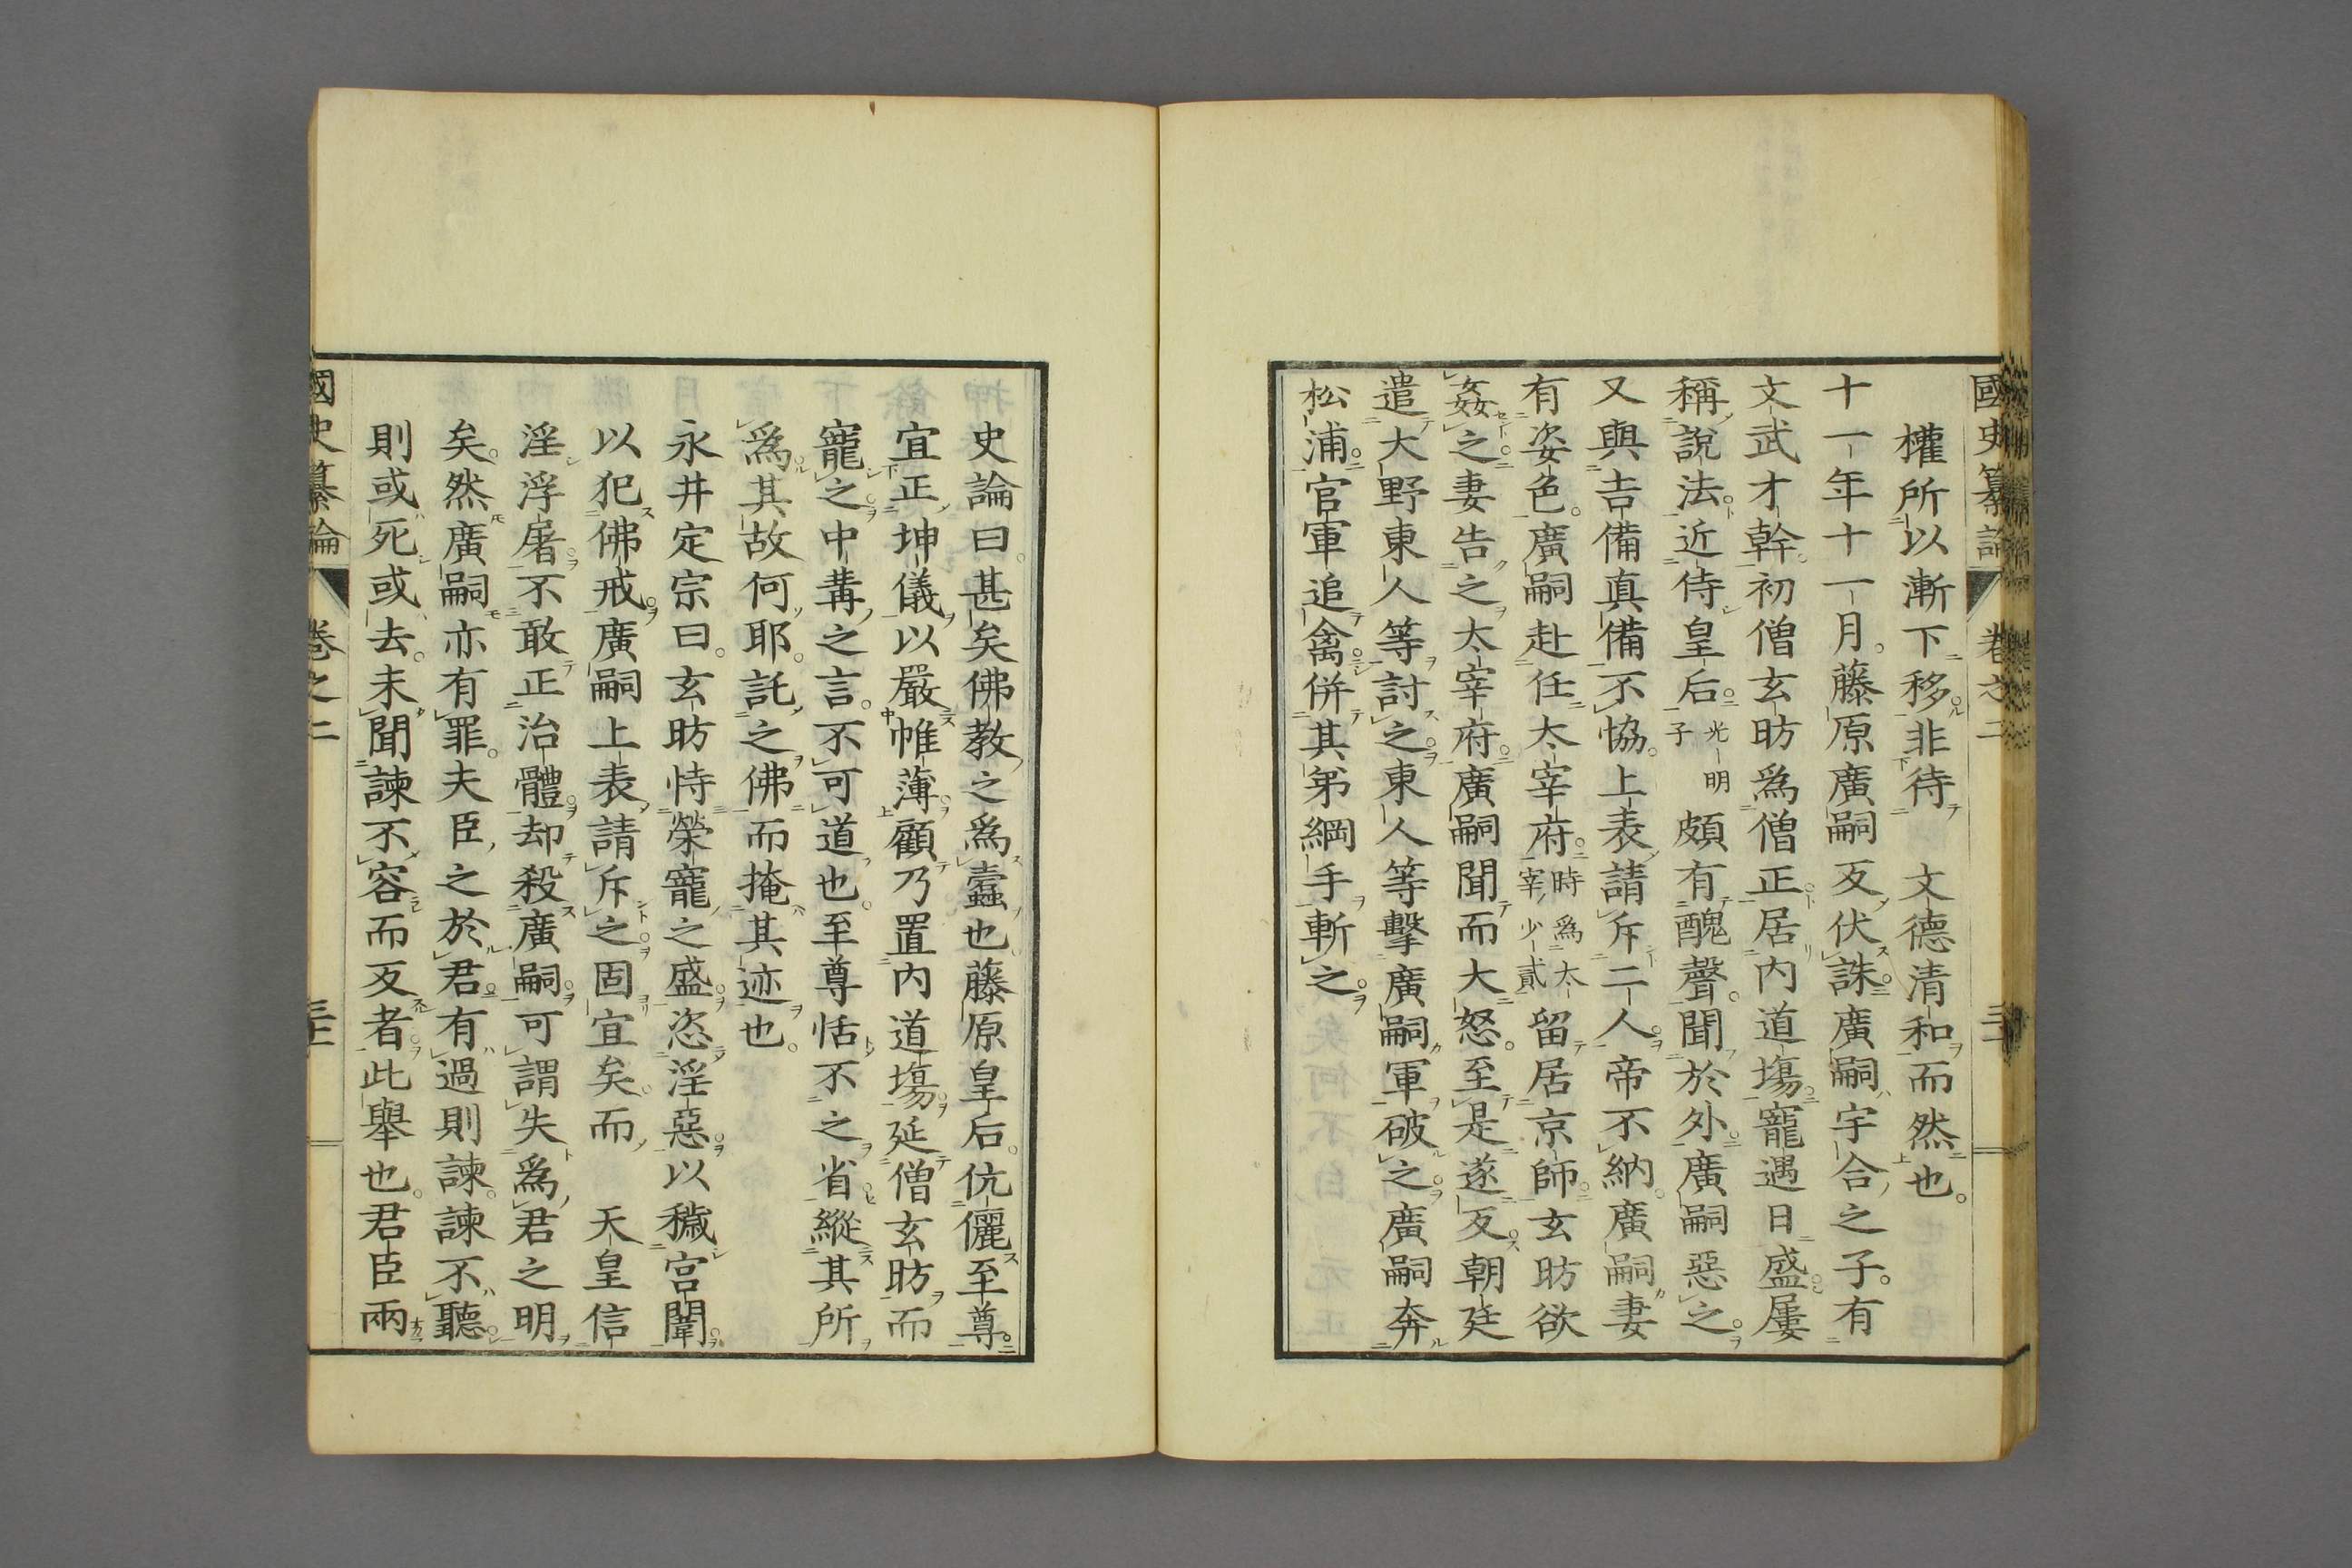 國史纂論 卷之二
權所以漸下移非待　文德清和而然也。
十一年十一月。藤原廣嗣反伏誅。廣嗣宇合之子。有
文武才幹。初僧玄昉爲僧正。居內道場。寵遇日盛。屢
稱說法。近侍皇后。光明子頗有醜聲。聞於外。廣嗣惡之。
又與吉備真備不協。上表請斥二人。帝不納。廣嗣妻
有姿色。廣嗣赴任太宰府。時爲太宰少貳留居京師。玄昉欲
姦之。妻告之太宰府。廣嗣聞而大怒。至是遂反。朝廷
遣大野東人等討之。東人等擊廣嗣軍破之。廣嗣奔
松浦。官軍追禽。併其弟綱手斬之。
史論曰。甚矣佛教之爲蠹也。藤原皇后。伉儷至尊。
宜正坤儀。以嚴帷薄。顧乃置內道場。延僧玄昉。而
寵之。中冓之言。不可道也。至尊恬不之省。縱其所
爲。其故何耶。託之佛而掩其迹也。
永井定宗曰。玄昉恃榮寵之盛。恣淫惡。以穢宮闈。
以犯佛戒。廣嗣上表請斥之。固宜矣。而　天皇信
淫浮屠。不敢正治體。却殺廣嗣。可謂失爲君之明
矣。然廣嗣亦有罪。夫臣之於君。有過則諫。諫不聽
則或死或去。未聞諫不容而反者。此舉也。君臣兩
國史纂論 卷之二